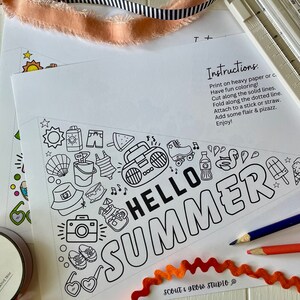 Instructions:
Print on heavy paper or c
Have fun coloring!
Cut along the solid lines.
Fold along the dotted line.
Attach to a stick or straw.
Add some flair & pizazz.
Enjoy!
HELLO
SUMMER
SCOUT & GROW STUDIO